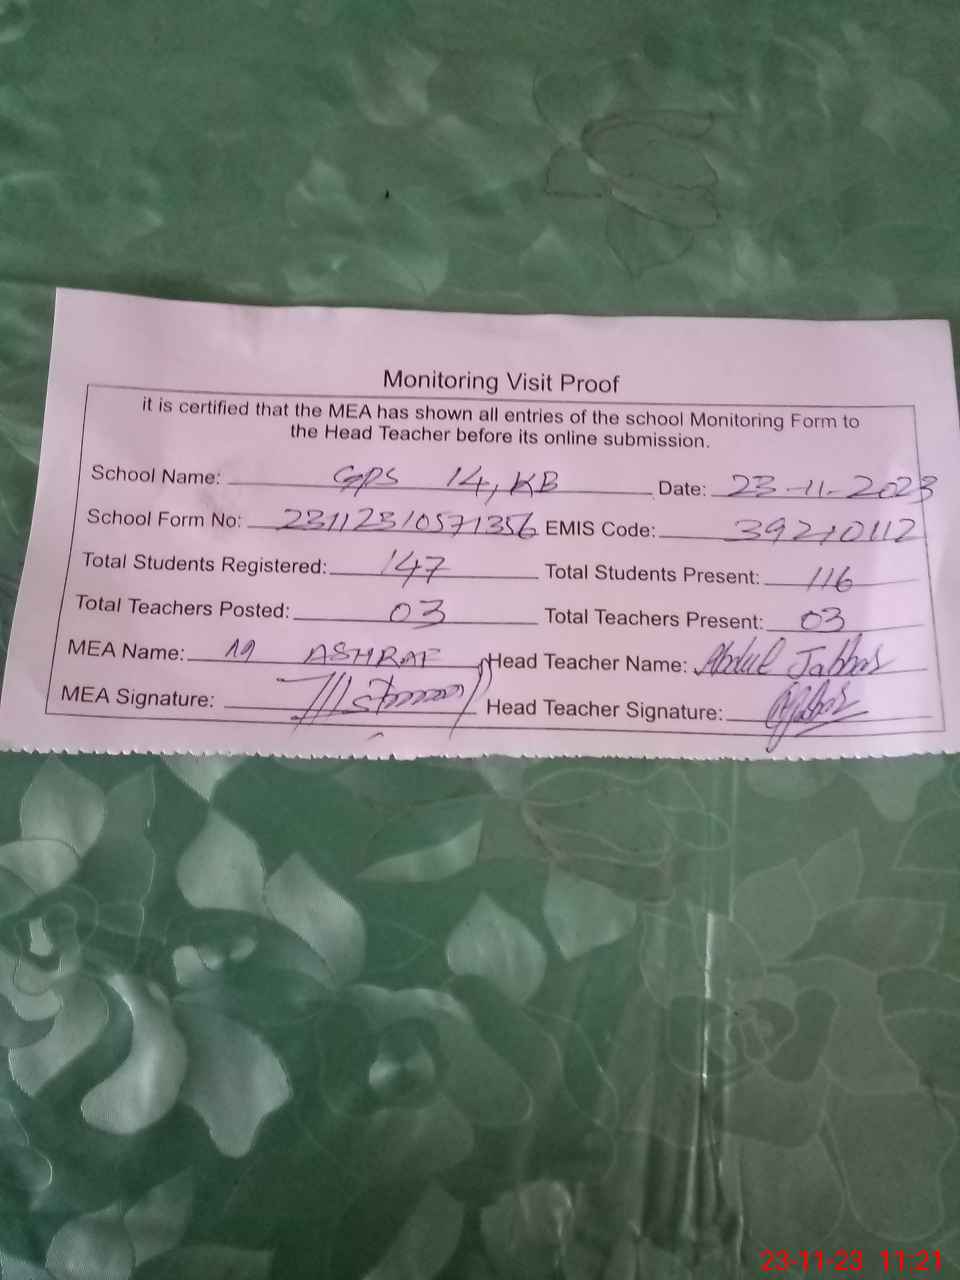 Monitoring Visit Proof
it is certified that the MEA has shown all entries of the school Monitoring Form to
the Head Teacher before its online submission.
School Name: GPS 14, KB Date: 23-11-2023
School Form No: 23112310571356 EMIS Code: 39210112
Total Students Registered: 147 Total Students Present: 116
Total Teachers Posted: 03 Total Teachers Present: 03
MEA Name: M ASHRAF Head Teacher Name: Abdul Jabbar
MEA Signature: Head Teacher Signature:
23-11-23 11:21